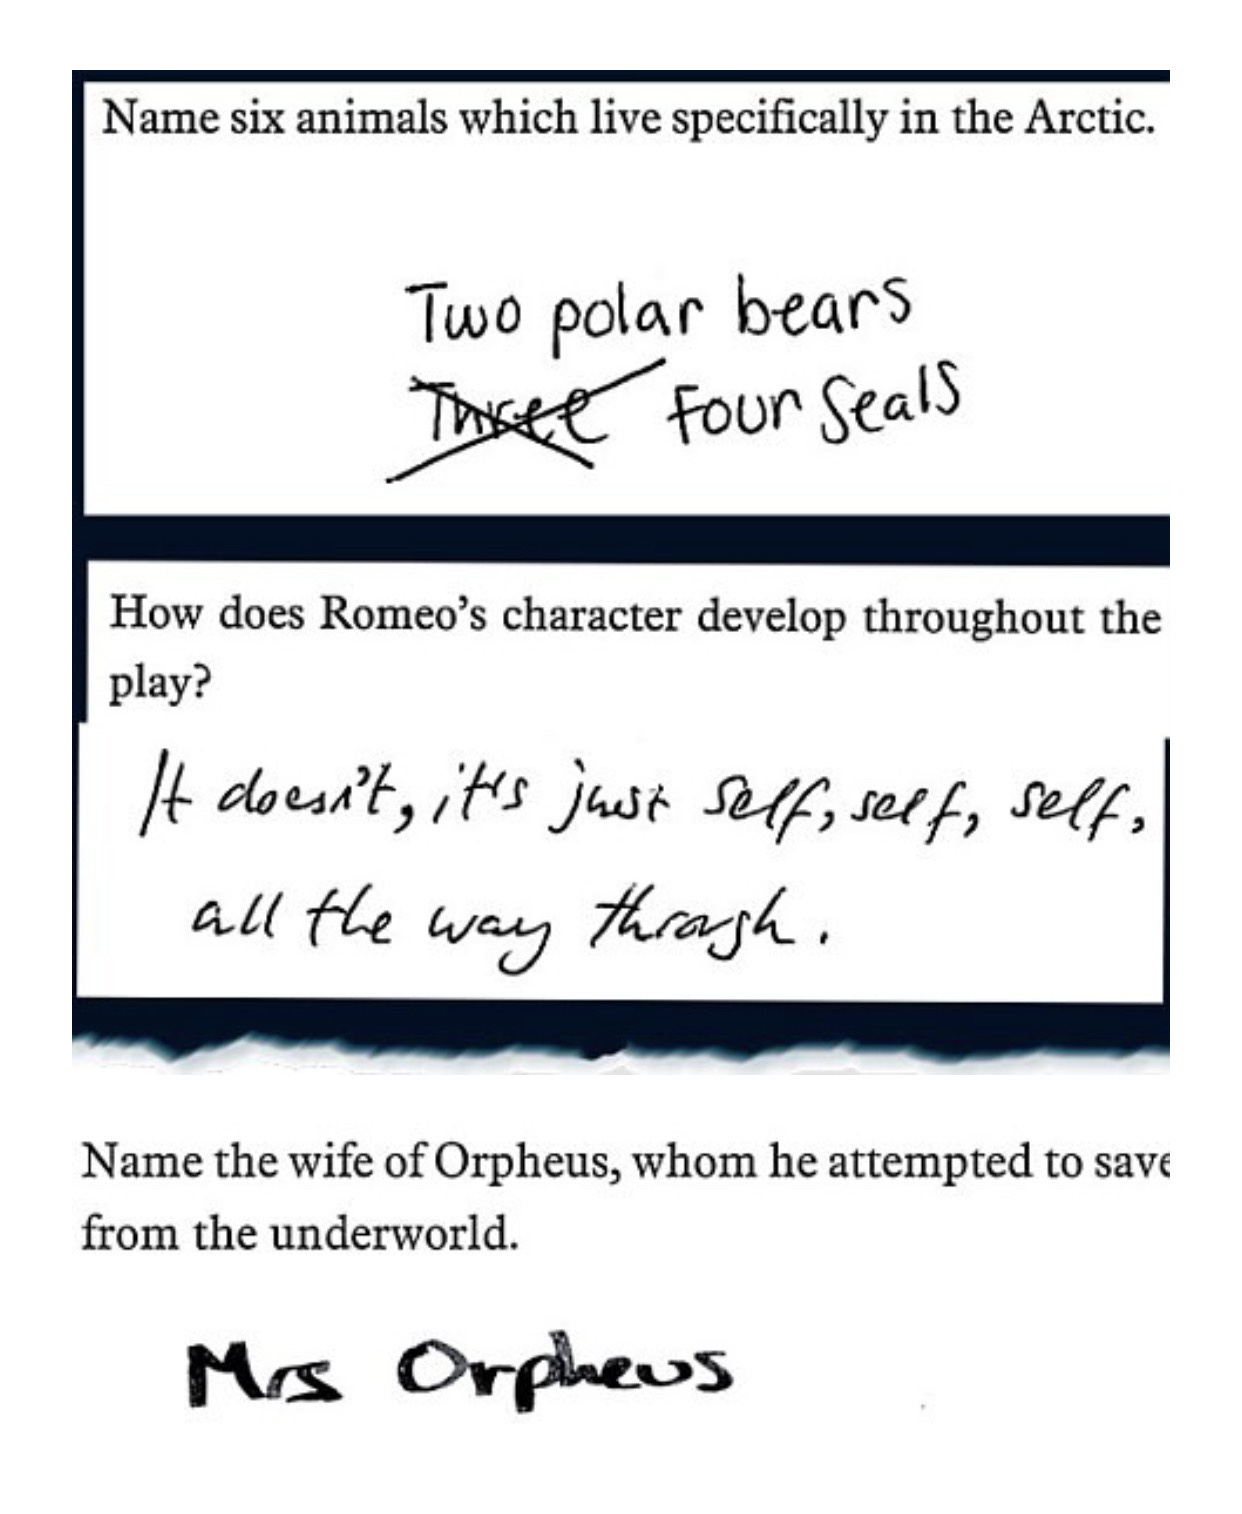 Name six animals which live specifically in the Arctic.
Two polar bears
Three Four Seals
How does Romeo's character develop throughout the
play?
It doesn't, it's just self, self, self,
all the way through.
Name the wife of Orpheus, whom he attempted to save
from the underworld.
Mrs Orpheus